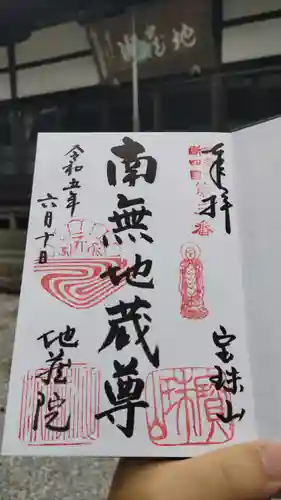 地蔵院
奉拝
宝珠山
南無地蔵尊
令和五年
六月十日
地蔵院